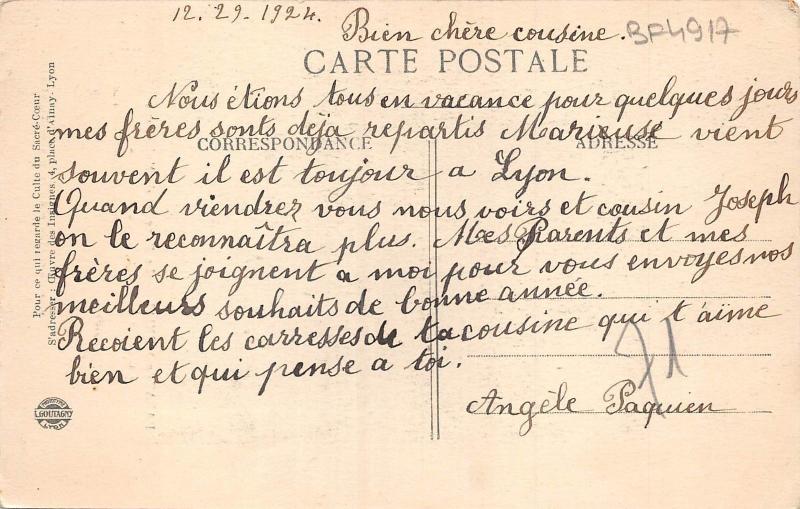 12.29.1924.
Bien chère cousine.
BF4917
CARTE POSTALE
Nous étions tous en vacance pour quelques jours
mes frères sonts déja repartis Marieusé vient
CORRESPONDANCE
ADRESSE
souvent il est toujour a Lyon.
Quand viendrez vous nous voirs et cousin Joseph
on le reconnaîtra plus. Mes Parents et mes
frères se joignent a moi pour vous envoyes nos
meilleurs souhaits de bonne année.
Recoient les carresses de ta cousine qui t'aime
bien et qui pense a toi.
Angèle Paquien
71
Pour ce qui regarde le Culte du Sacré-Cœur
S'adresser : Œuvre des Insignes, 4, place d'Ainay - Lyon
PHOTOTYPIE
L. GOUTAGNY
LYON